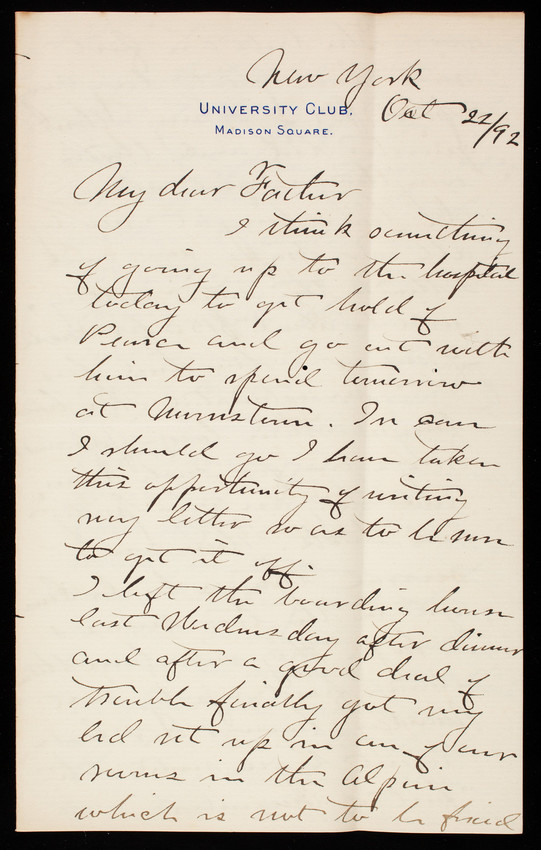 New York
UNIVERSITY CLUB.
MADISON SQUARE.
Oct 22/92
My dear Father
I think something
of going up to the hospital
today to get hold of
Pearce and go out with
him to spend tomorrow
at Morristown. In case
I should go I have taken
this opportunity of writing
my letter so as to be sure
to get it off.
I left the boarding house
last Wednesday after dinner
and after a good deal of
trouble finally got my
bed set up in one of our
rooms in the Alpine
which is not to be fixed